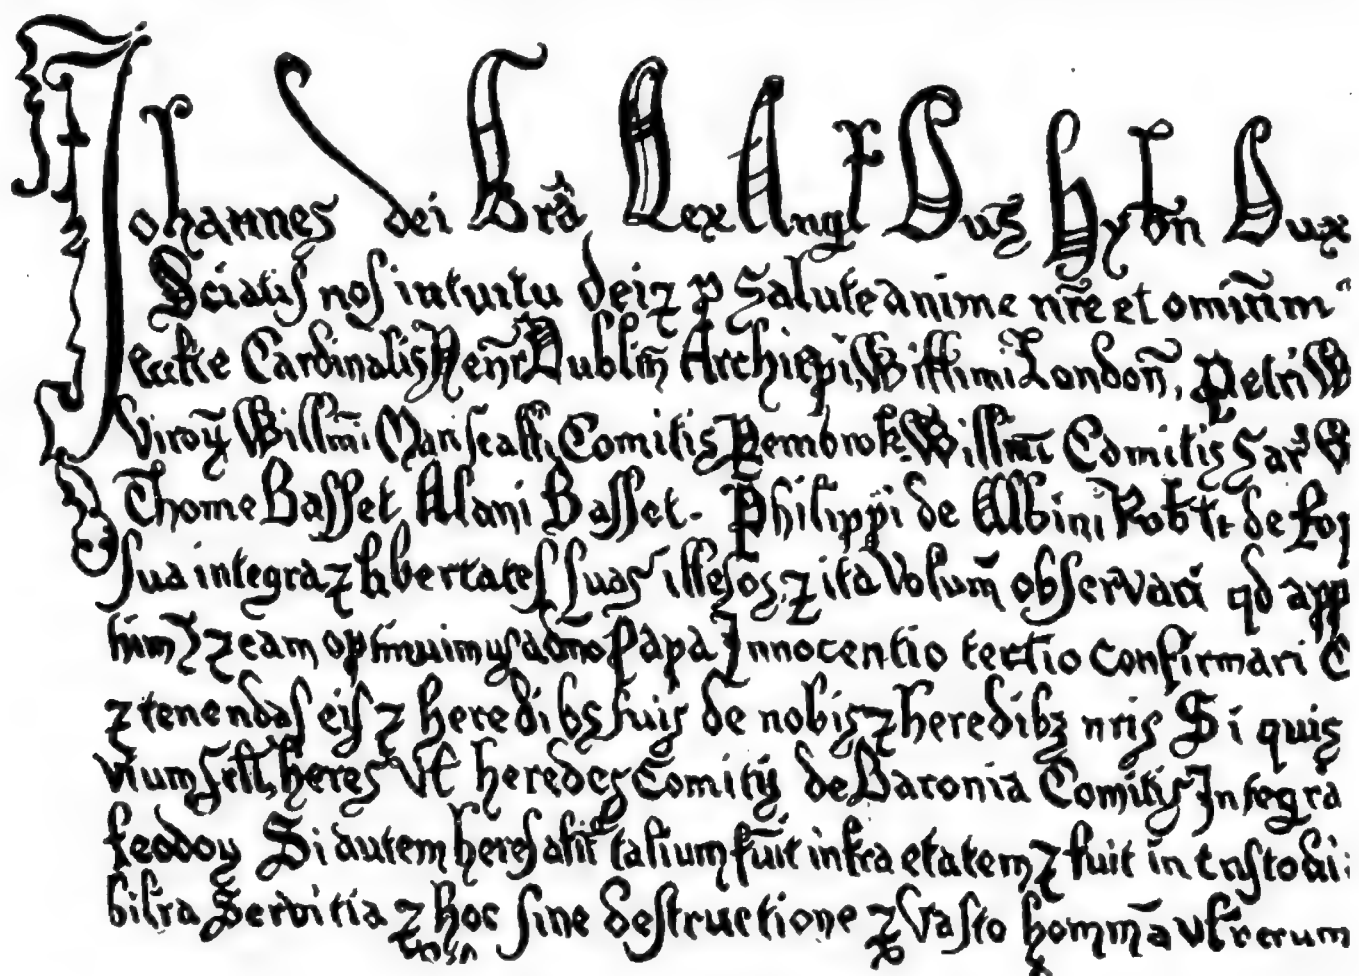 Johannes dei Grã Rex Angl Dns hybn Dux
Sciatis nos intuitu dei ⁊ p Salute anime nr̃e et omniũm
eccłie Cardinalis Henr̃ Dublin̄ Archiep̄i, Willimi London̄, Petri W
viroꝝ Willm̄i Mariscalli Comitis Pembrok Willm̄i Comitis Sar̄
Thome Basset Alani Basset. Philippi de Albini Robti de Rop
sua integra ⁊ libertates suas illesas, ⁊ ita volum̄ observari qd app
⁊ eam optinuimus a dno Papa Innocentio tertio confirmari C
⁊ tenendas eis ⁊ heredibȝ suis de nobis ⁊ heredibȝ nris Si quis
heres vł heredes Comitis de Baronia Comitis Integra
feodoꝝ Si autem heres alic̄ talium fũit infra etatem ⁊ fuit in custodi
Servitia ⁊ hoc sine destructione ⁊ vasto hominū vł rerum